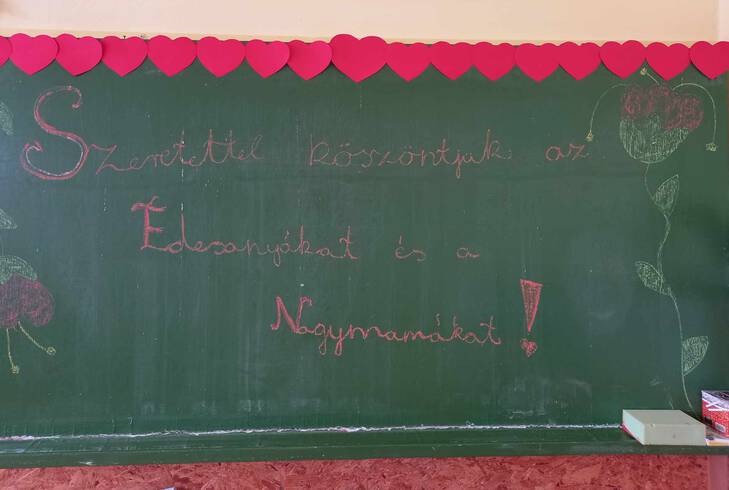 Szeretettel köszöntjük az
Édesanyákat és a
Nagymamákat!